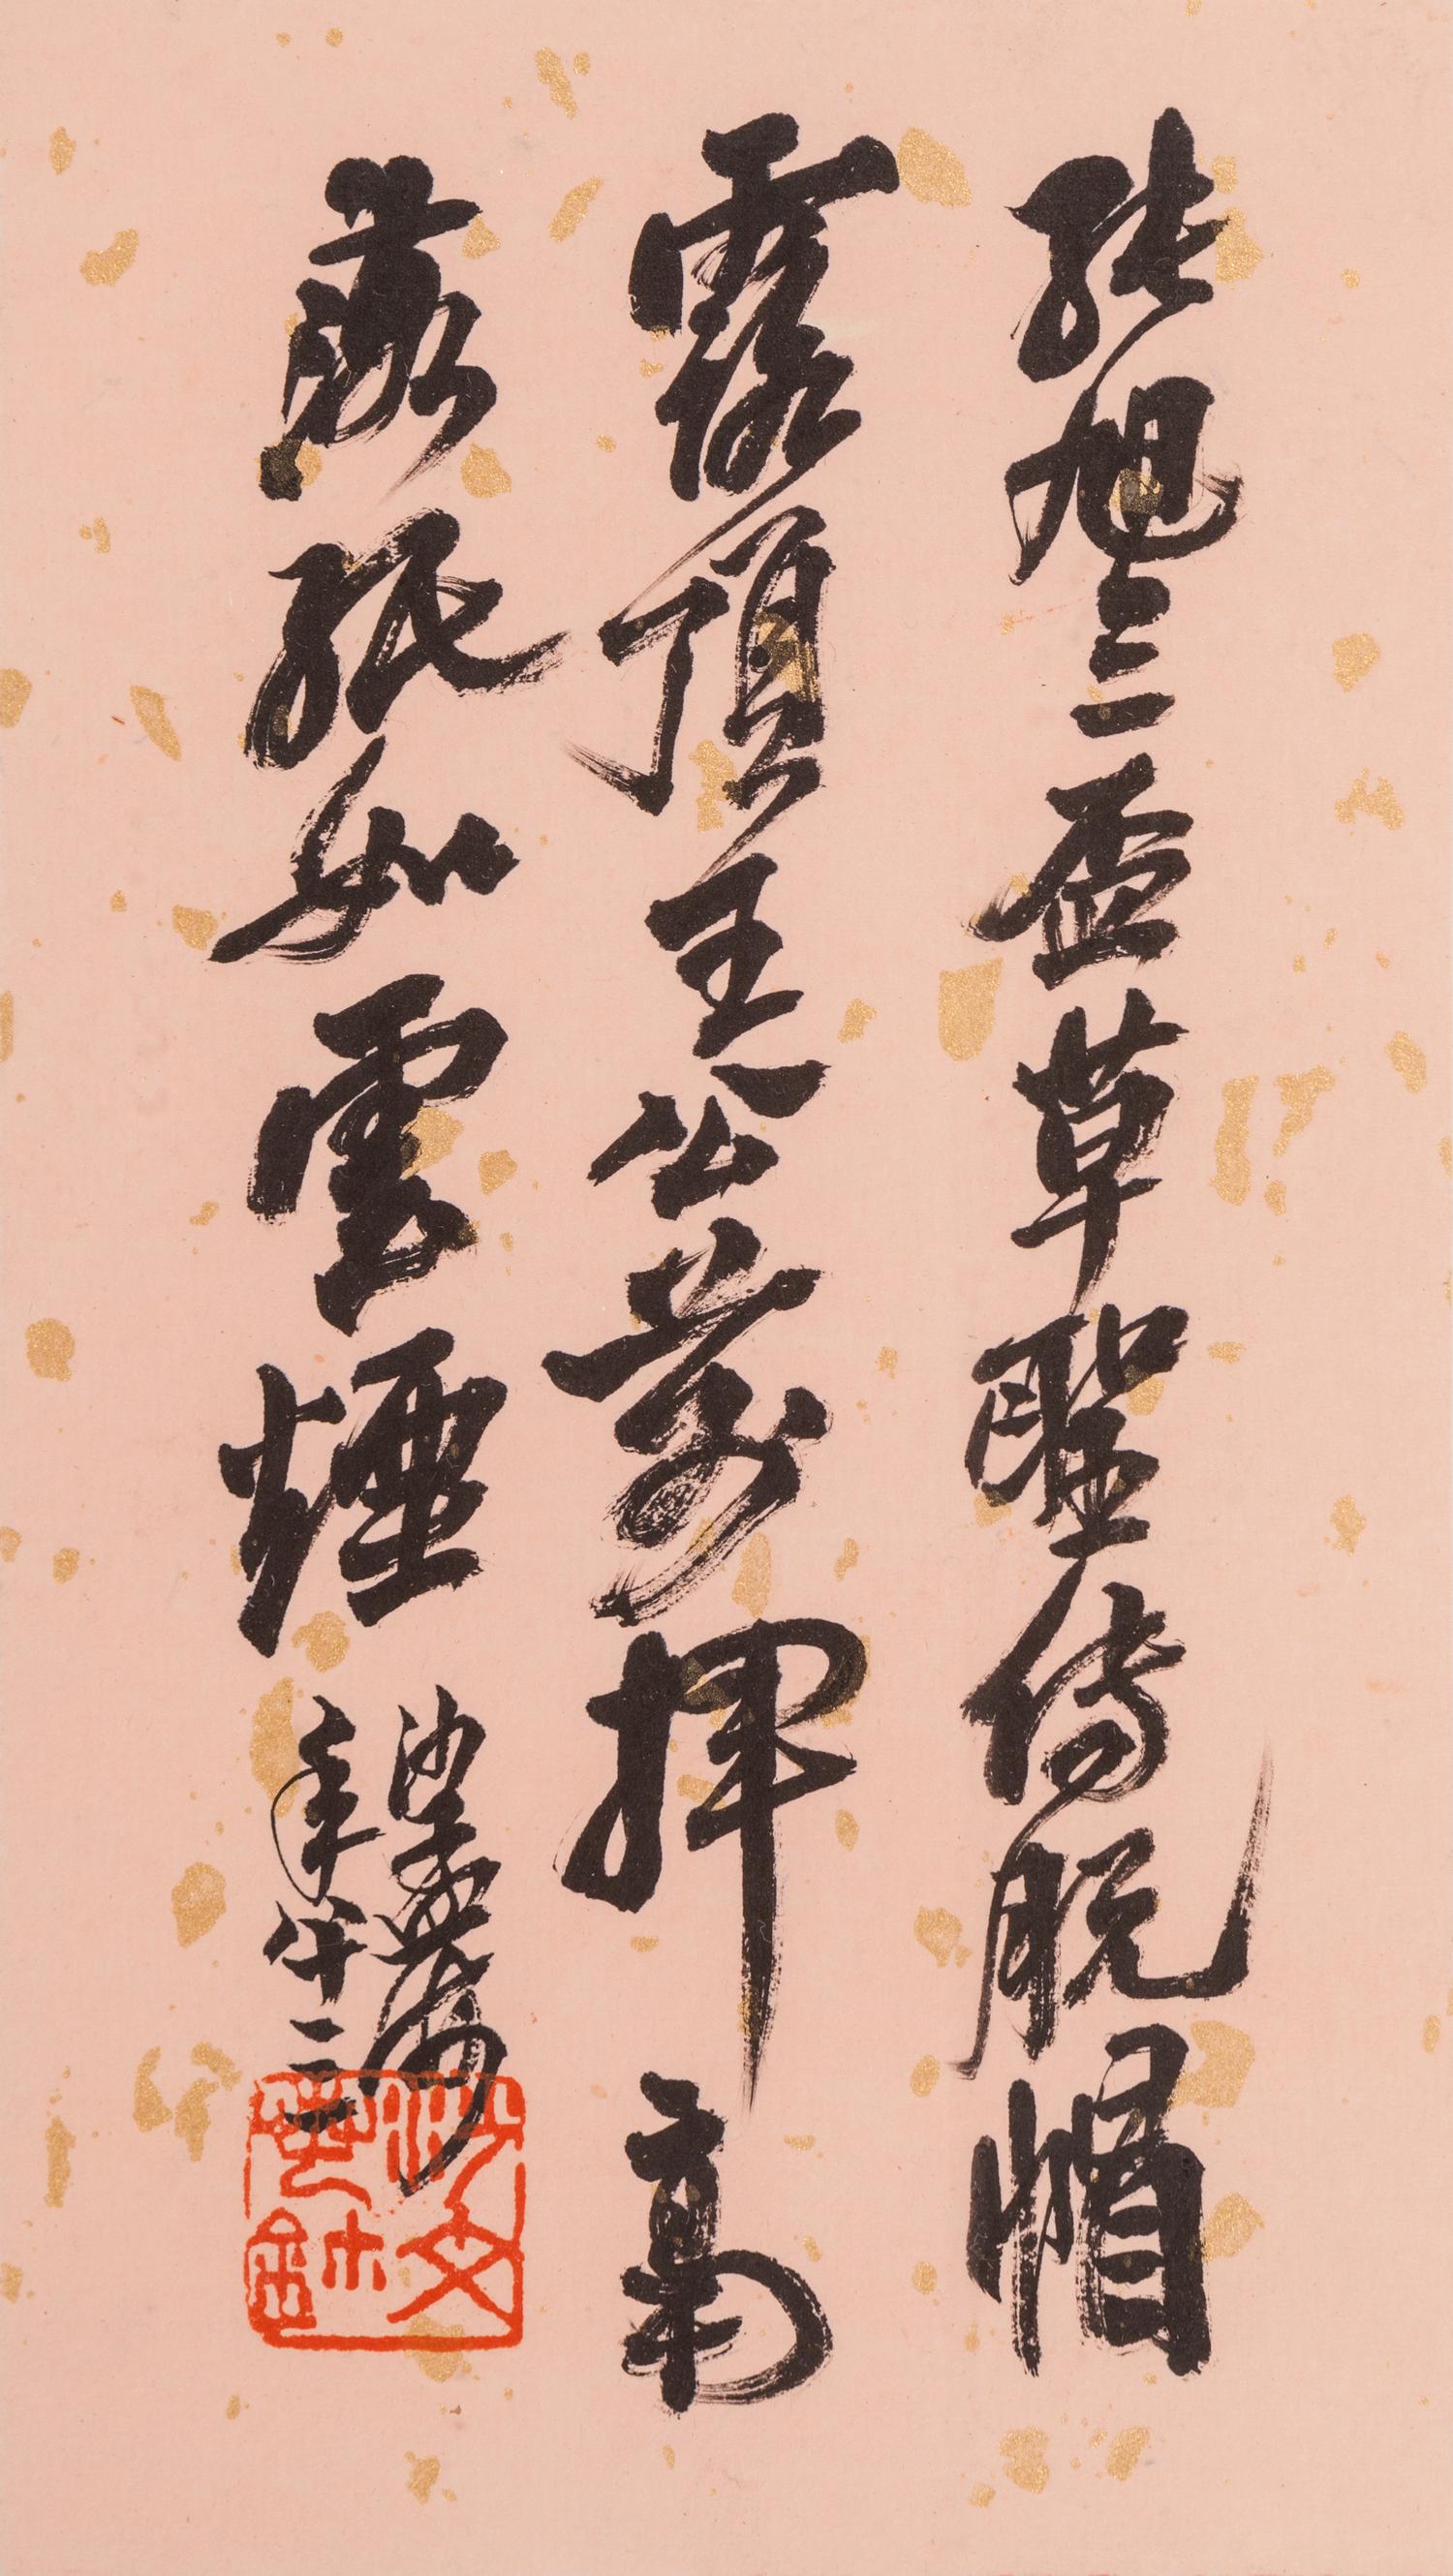 張旭三盃草聖傳脫帽
露頂王公前揮豪
落紙如雲煙
沙孟海
年八十二
沙文